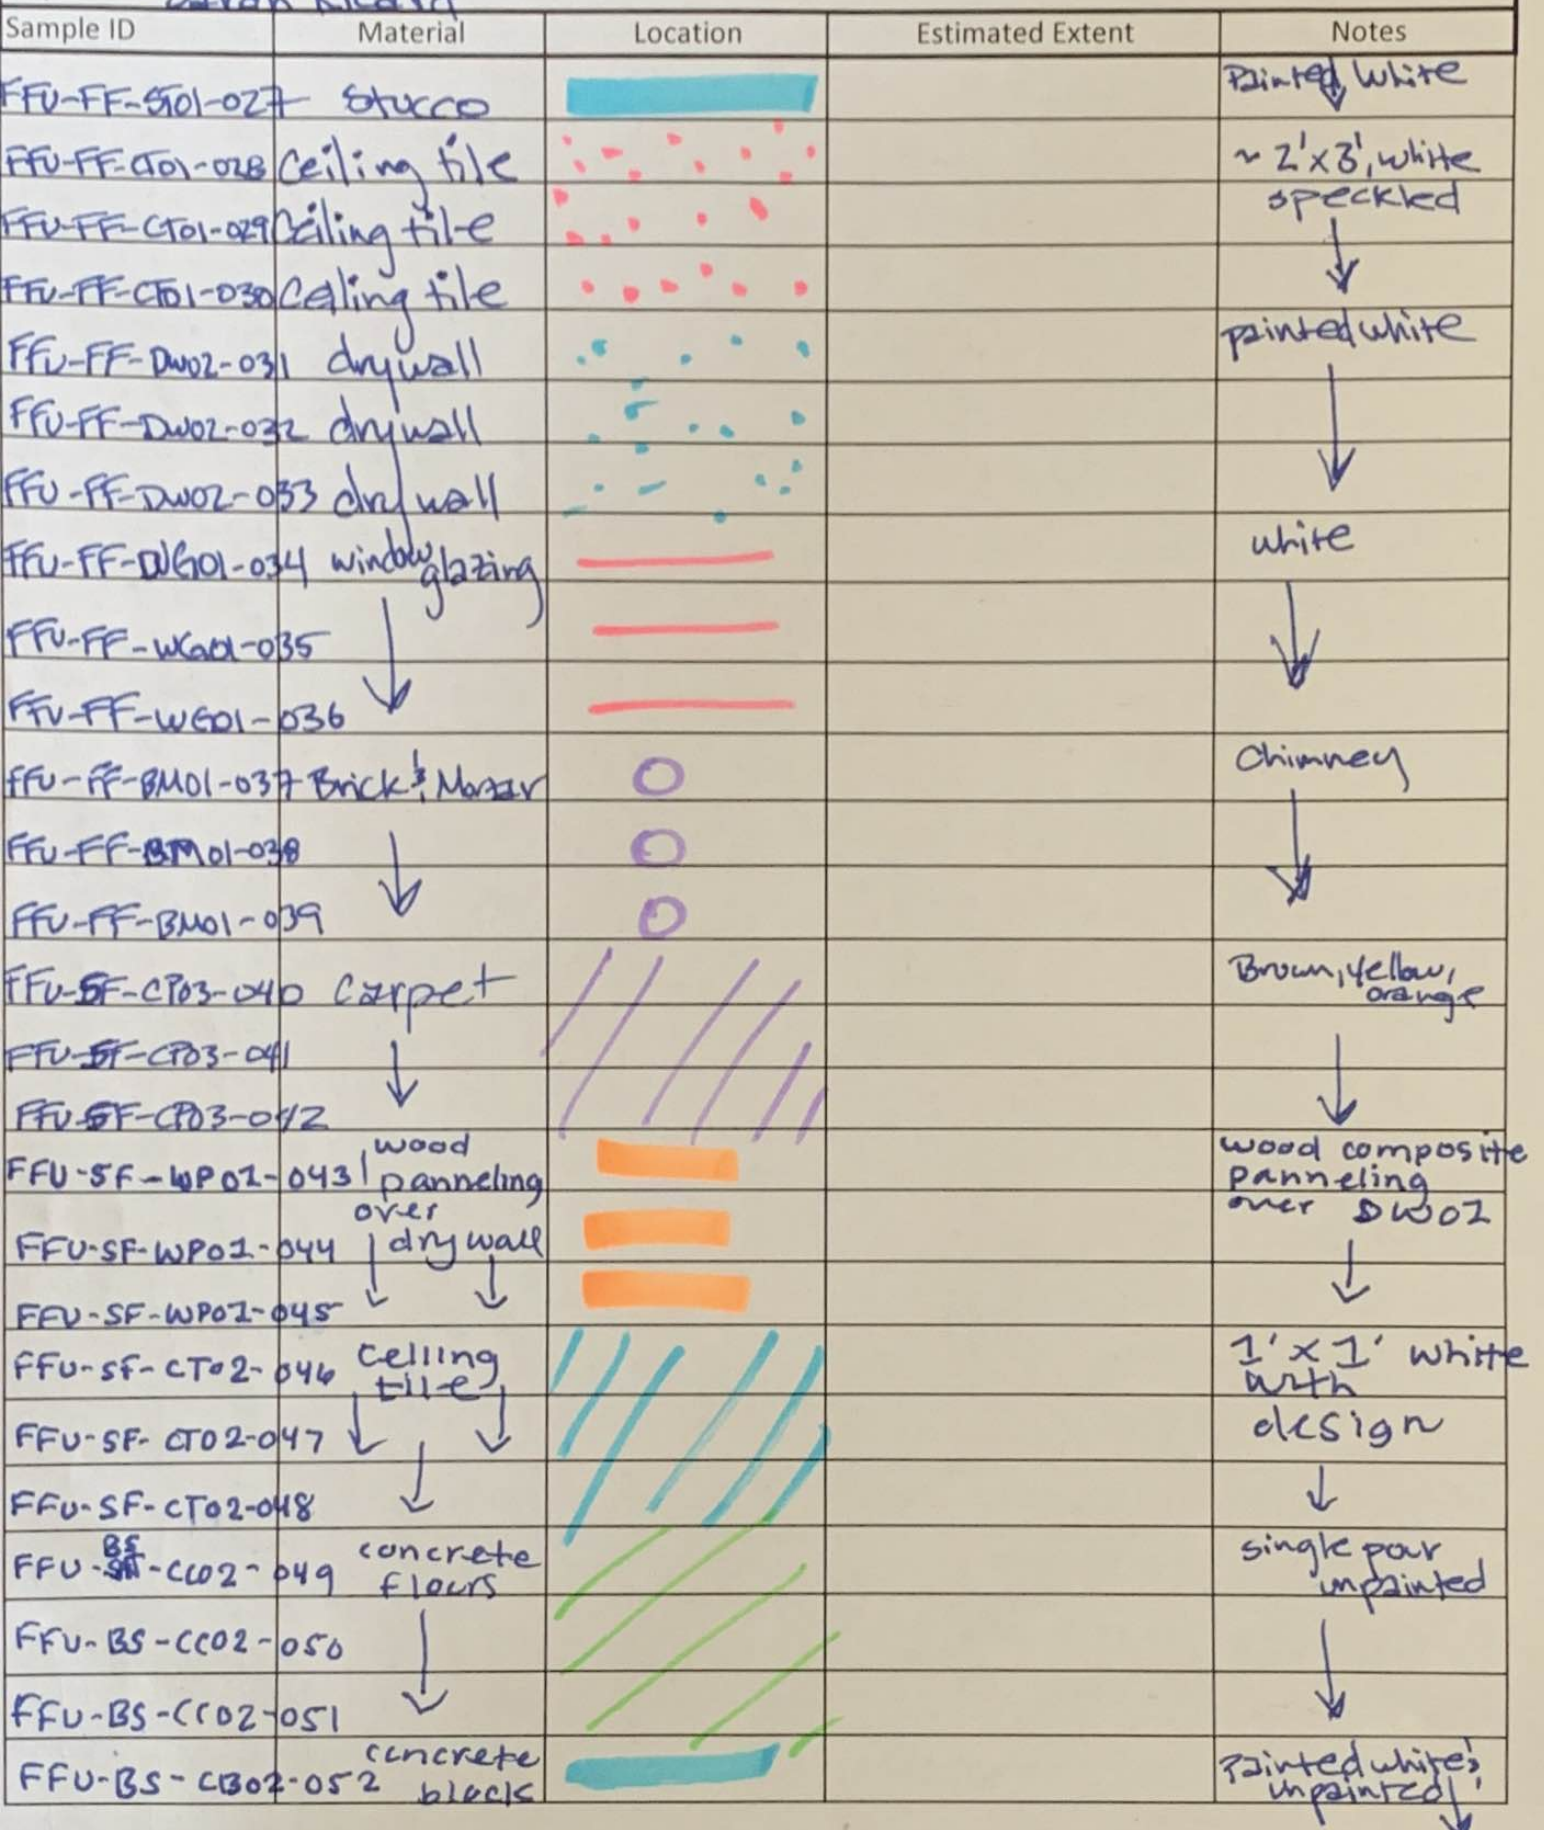 Sample ID Material Location Estimated Extent Notes
FFU-FF-ST01-027 Stucco Painted White
FFU-FF-CT01-028 Ceiling tile ~ 2'x3', white
speckled
FFU-FF-CT01-029 Ceiling tile
FFU-FF-CT01-030 Ceiling tile
FFU-FF-DW02-031 drywall painted white
FFU-FF-DW02-032 drywall
FFU-FF-DW02-033 drywall
FFU-FF-WG01-034 window glazing white
FFU-FF-WG01-035
FFU-FF-WG01-036
FFU-FF-BM01-037 Brick & Mortar Chimney
FFU-FF-BM01-038
FFU-FF-BM01-039
FFU-SF-CP03-040 Carpet Brown, yellow,
orange
FFU-SF-CP03-041
FFU-SF-CP03-042
FFU-SF-WP01-043 wood panneling wood composite panneling
over over DW01
FFU-SF-WP01-044 drywall
FFU-SF-WP01-045
FFU-SF-CT02-046 Celling tile 1'x1' white with
FFU-SF-CT02-047 design
FFU-SF-CT02-048
FFU-BS-CC02-049 concrete floors single pour unpainted
FFU-BS-CC02-050
FFU-BS-CC02-051
FFU-BS-CB02-052 concrete block Painted white & unpainted